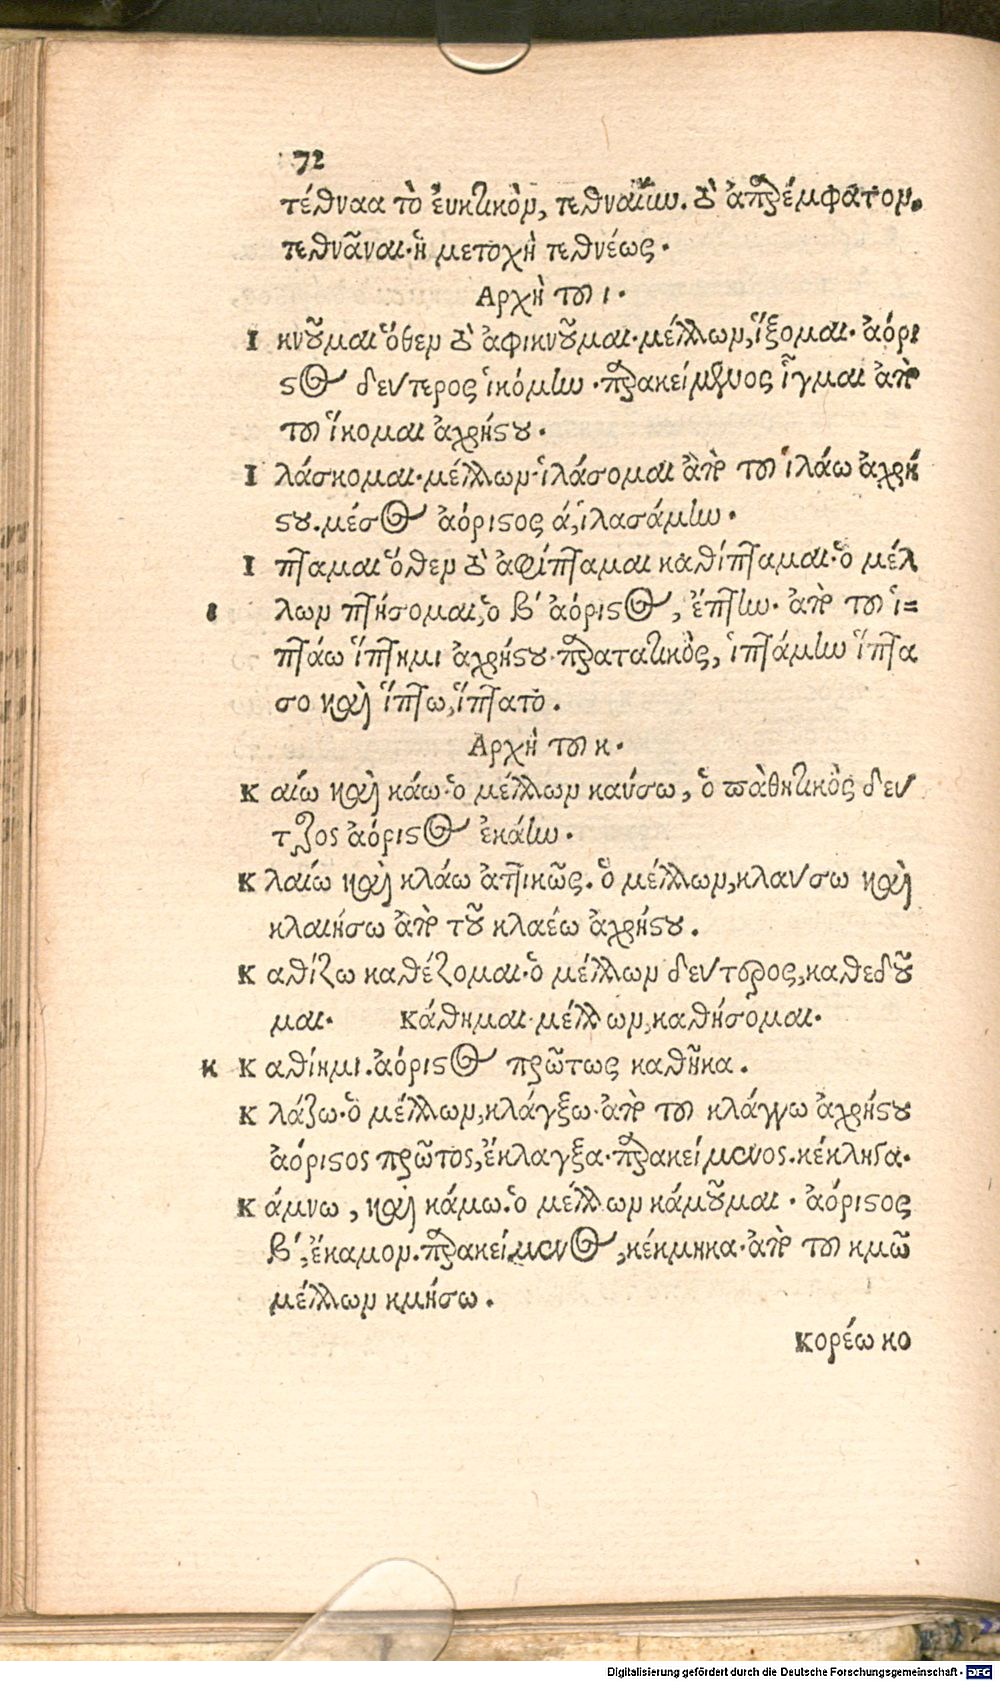 72
τέθναα τὸ ἐυκτικὸν, τεθναίην. τὸ ἀπαρέμφατον.
τεθνᾶναι· ἡ μετοχὴ τεθνέως.
Αρχὴ τοῦ ι.
Ι κνοῦμαι ὅθεν τὸ ἀφικνοῦμαι. μέλλων, ἵξομαι. ἀόρι
στος δευτερος ἱκόμην. παρακείμενος ἷγμαι ἀπὸ
τοῦ ἵκομαι ἀχρήστου.
Ι λάσκομαι. μέλλων ἱλάσομαι ἀπὸ τοῦ ἱλάω ἀχρή
στου. μέσος ἀόριστος ά, ἱλασάμην.
Ι πταμαι ὅθεν τὸ ἀφίπταμαι καθίπταμαι. ὁ μέλ
ι λων πτήσομαι, ὁ β' ἀόριστος, ἔπτην. ἀπὸ τοῦ ἱ=
πτάω ἵπτημι ἀχρήστου. παρατατικὸς, ἱπτάμην ἵπτα
σο καὶ ἵπτω, ἵπτατο.
Αρχὴ τοῦ κ.
Κ αίω καὶ κάω. ὁ μέλλων καύσω, ὁ παθητικὸς δευ
τερος ἀόριστος ἐκάην.
Κ λαίω καὶ κλάω ἀττικῶς. ὁ μέλλων, κλαυσω καὶ
κλαιήσω ἀπὸ τοῦ κλαέω ἀχρήστου.
Κ αθίζω καθέζομαι. ὁ μέλλων δευτερος, καθεδοῦ
μαι. Κάθημαι. μέλλων, καθήσομαι.
κ Κ αθίημι. ἀόριστος πρῶτως καθῆκα.
Κ λάζω. ὁ μέλλων, κλάγξω. ἀπὸ τοῦ κλάγγω ἀχρήστου
ἀόριστος πρῶτος, ἔκλαγξα. παρακείμενος. κέκληγα.
Κ άμνω, καὶ κάμω. ὁ μέλλων κάμοῦμαι. ἀόριστος
β', ἔκαμον. παρακείμενος, κέκμηκα. ἀπὸ τοῦ κμῶ
μέλλων κμήσω.
Κορέω κο
Digitalisierung gefördert durch die Deutsche Forschungsgemeinschaft - DFG